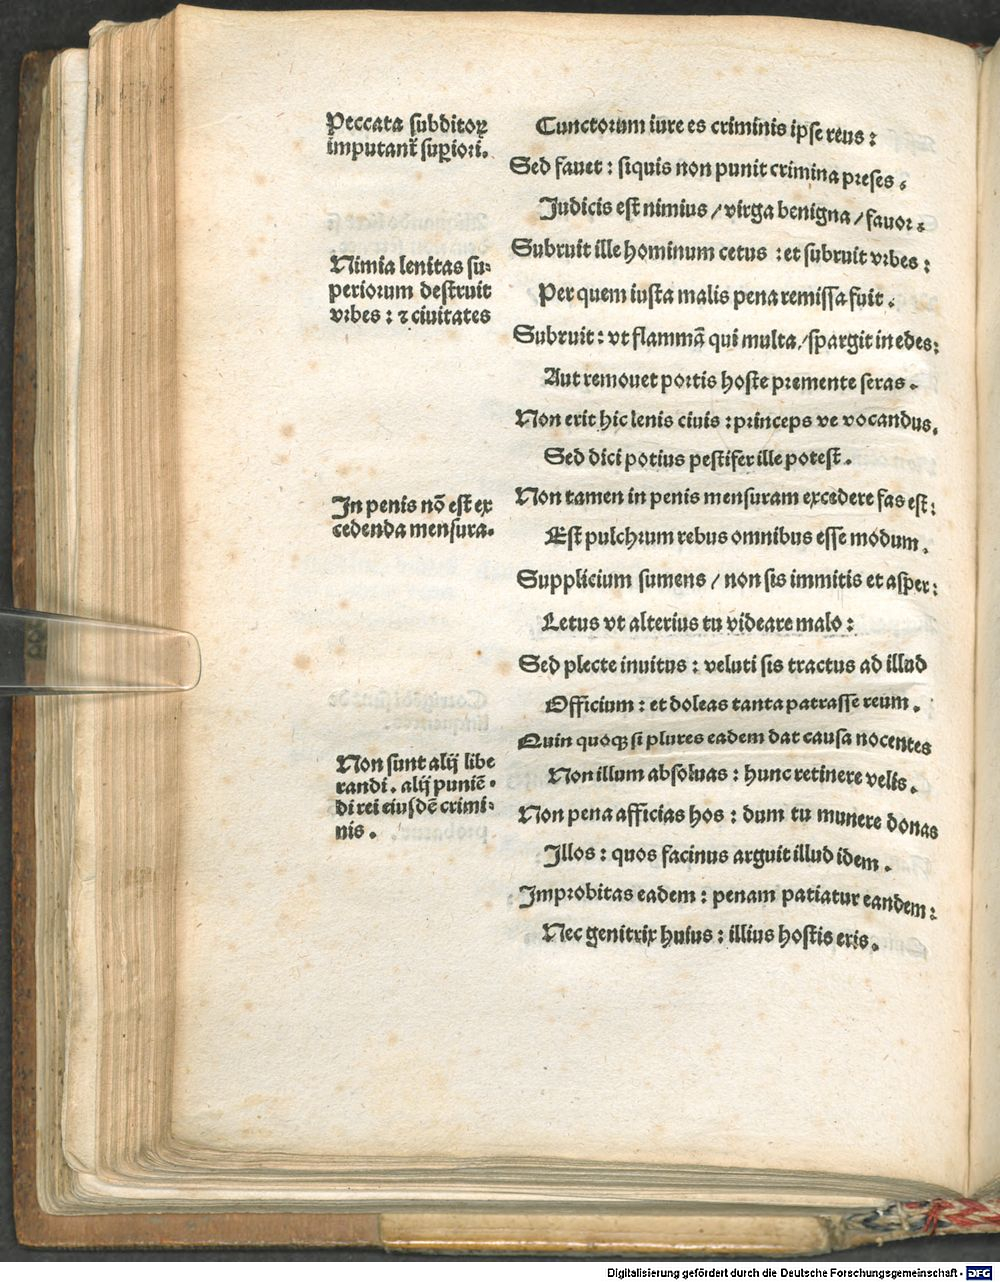 Peccata subditoꝝ
imputant᷑ suꝑiori.
Cunctorum iure es criminis ipse reus:
Sed fauet: siquis non punit crimina preses.
Judicis est nimius / virga benigna / fauor.
Nimia lenitas su⸗
periorum destruit
vrbes: ⁊ ciuitates
Subruit ille hominum cetus: et subruit vrbes:
Per quem iusta malis pena remissa fuit.
Subruit: vt flammā qui multa / spargit in edes:
Aut remouet portis hoste premente seras.
Non erit hic lenis ciuis: princeps ve vocandus.
Sed dici potius pestifer ille potest.
In penis nō est ex
cedenda mensura.
Non tamen in penis mensuram excedere fas est:
Est pulchrum rebus omnibus esse modum.
Supplicium sumens / non sis immitis et asper:
Letus vt alterius tu videare malo:
Sed plecte inuitus: veluti sis tractus ad illud
Officium: et doleas tanta patrasse reum.
Non sunt alij libe
randi. alij puniē⸗
di rei eiusdē crimi⸗
nis.
Quin quoqꝫ si plures eadem dat causa nocentes
Non illum absoluas: hunc retinere velis.
Non pena afficias hos: dum tu munere donas
Illos: quos facinus arguit illud idem.
Improbitas eadem: penam patiatur eandem:
Nec genitrix huius: illius hostis eris.
Digitalisierung gefördert durch die Deutsche Forschungsgemeinschaft - DFG